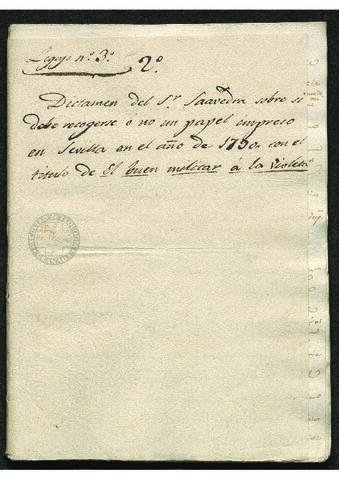 Legajo nº. 3º.
2º.
Dictamen del Sr. Saavedra sobre si
debe recogerse ó no un papel impreso
en Sevilla en el año de 1790. con el
titulo de El buen militar á la violeta.